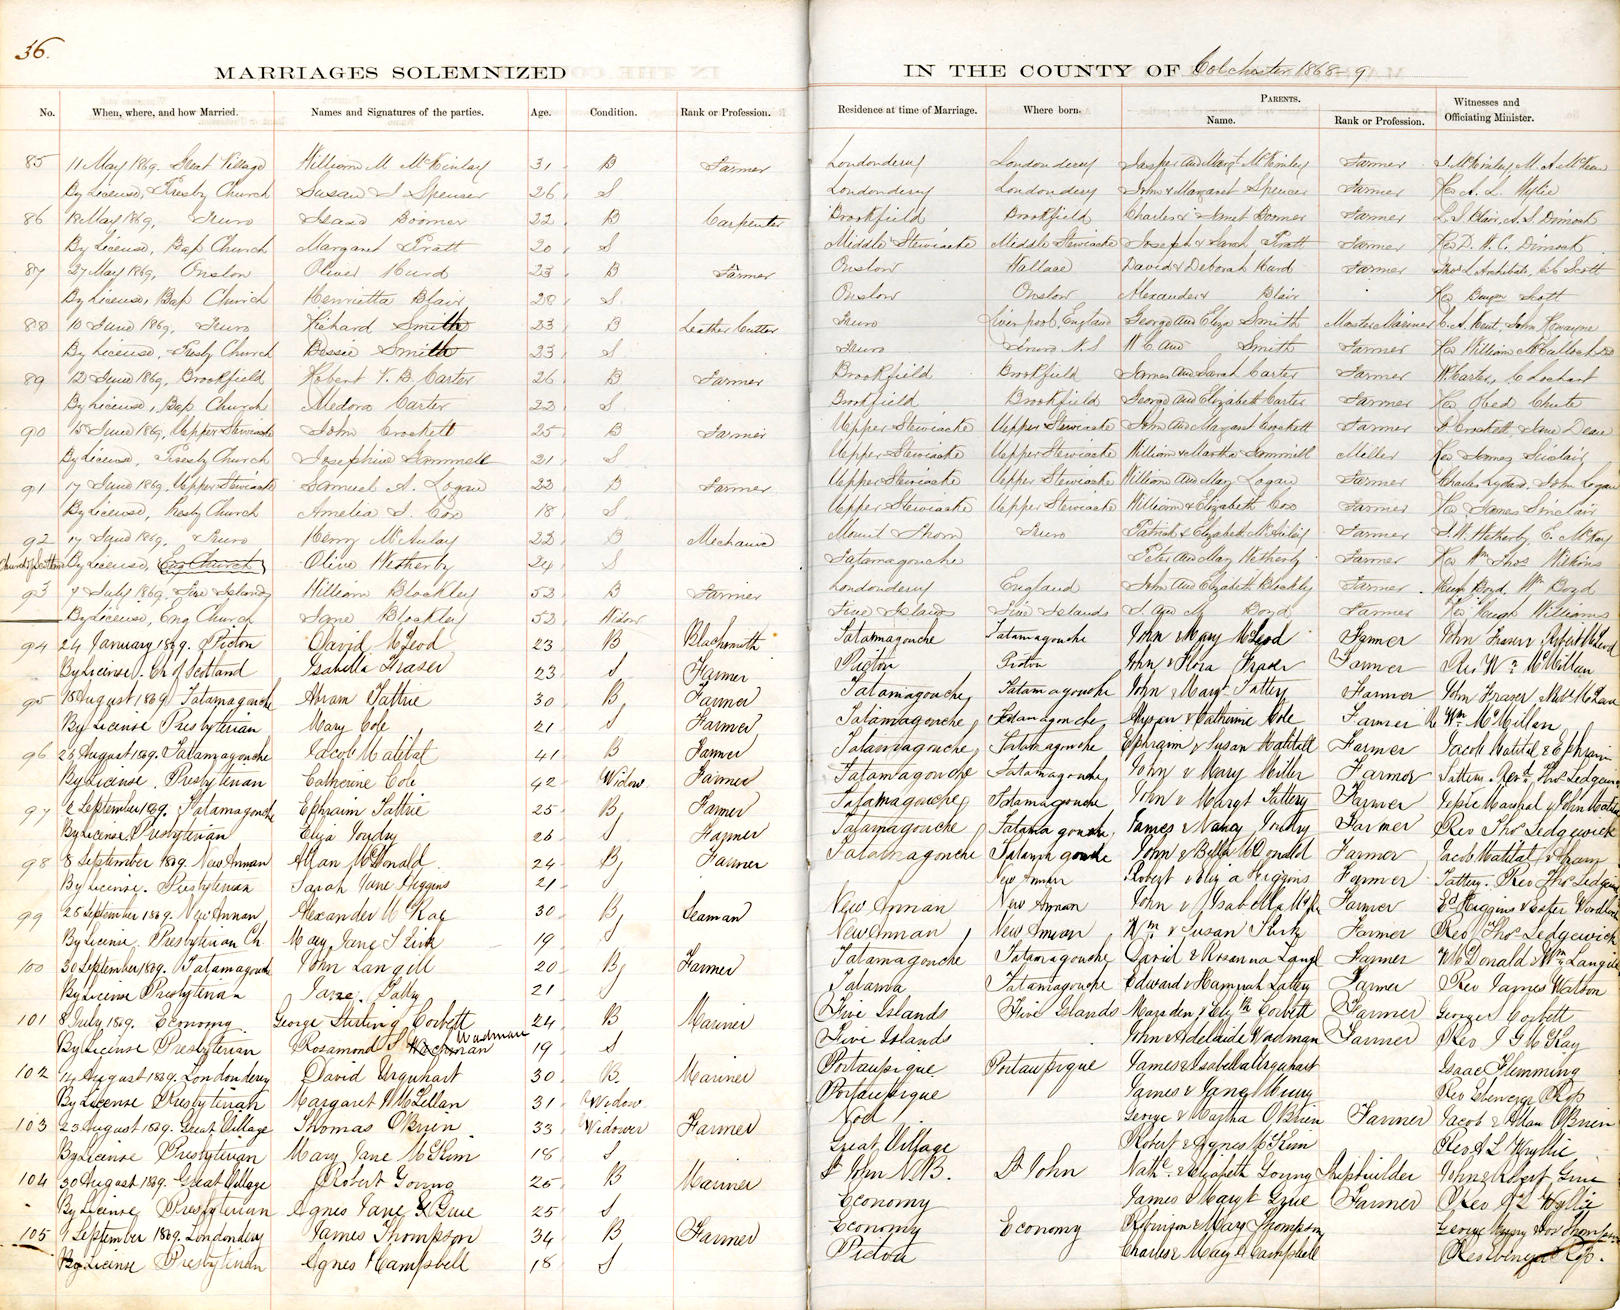 36.
MARRIAGES SOLEMNIZED
IN THE COUNTY OF Colchester 1868-9
No. When, where, and how Married. Names and Signatures of the parties. Age. Condition. Rank or Profession. Residence at time of Marriage. Where born. PARENTS. Name. Rank or Profession. Witnesses and Officiating Minister.
85 11 May 1869. Great Village William M McKinlay 31 B Farmer Londonderry Londonderry Jasper and Margt McKinley Farmer
By License, Presby Church Susan I Spencer 26 S Londonderry Londonderry John & Margaret Spencer Farmer Rev A. L. Wylie
86 18 May 1869, Truro Isaac Boomer 22 B Carpenter Brookfield Brookfield Charles & Janet Boomer Farmer L. S. Blair, A. S. Dimock
By License, Bap Church Margaret Pratt 20 S Middle Stewiacke Middle Stewiacke Joseph & Sarah Pratt Farmer Rev D. W. C. Dimock
87 27 May 1869, Onslow Oliver Hurd 23 B Farmer Onslow Wallace David & Deborah Hurd Farmer Thos L Archibald, Scott
By License, Bap Church Henrietta Blair 20 S Onslow Onslow Alexander Blair Rev Scott
88 10 June 1869, Truro Richard Smith 23 B Leather Cutter Truro Liverpool, England George and Eliza Smith Master Mariner C. A. Kent, John
By License, Presby Church Bessie Smith 23 S Truro Truro N.S W C and Smith Farmer Rev William McCulloch
89 12 June 1869, Brookfield Robert V. B. Carter 26 B Farmer Brookfield Brookfield James and Sarah Carter Farmer W Carter, C Lockhart
By License, Bap Church Medora Carter 22 S Brookfield Brookfield George and Elizabeth Carter Farmer Rev Obed Chute
90 15 June 1869, Upper Stewiacke John Crockett 25 B Farmer Upper Stewiacke Upper Stewiacke John and Margaret Crockett Farmer Crockett, Jane Dean
By License, Presby Church Josephine Gammell 21 S Upper Stewiacke Upper Stewiacke William & Martha Gammell Miller Rev James Sinclair
91 17 June 1869. Upper Stewiacke Samuel A. Logan 22 B Farmer Upper Stewiacke Upper Stewiacke William and May Logan Farmer Charles John Logan
By License, Presby Church Amelia S. Cox 18 S Upper Stewiacke Upper Stewiacke William & Elizabeth Cox Farmer Rev James Sinclair
92 17 June 1869, Truro Henry McAulay 22 B Mechanic Mount Thom Truro Patrick & Elizabeth McAulay Farmer J. W. Wetherby, E. McKay
Church of Scotland By License, Eng Church Olive Wetherby 24 S Tatamagouche Peter and May Wetherby Farmer Rev Wm Thos Wilkins
93 7 July 1869. Five Islands William Blockley 52 B Farmer Londonderry England John and Elizabeth Blockley Farmer Hugh Boyd, Wm Boyd
By License, Eng Church Jane Blockley 52 Widow Five Islands Five Islands Boyd Farmer Rev Hugh Williams
94 24 January 1869. Pictou David McLeod 23 B Blacksmith Tatamagouche Tatamagouche John & Mary McLeod Farmer John Fraser & Robert McLeod
By License. Ch of Scotland Isabella Fraser 23 S Farmer Pictou Pictou John & Flora Fraser Farmer Rev Wm McMillan
95 18 August 1869 Tatamagouche Abram Tattrie 30 B Farmer Tatamagouche Tatamagouche John & Margt Tattery Farmer John Fraser
By License Presbyterian Mary Cole 21 S Farmer Tatamagouche Tatamagouche & Catherine Cole Farmer R Wm McMillan
96 26 August 1869. Tatamagouche Jacob Matital 41 B Farmer Tatamagouche Tatamagouche Ephraim & Susan Matitall Farmer Jacob Matital & Ephraim
By License. Presbyterian Catherine Cole 42 Widow Farmer Tatamagouche Tatamagouche John & Mary Miller Farmer Tattery. Revd Thos Sedgewick
97 2 September 1869. Tatamagouche Ephraim Tattrie 25 B Farmer Tatamagouche Tatamagouche John & Margt Tattery Farmer Marshal & John
By License Presbyterian Eliza Joudry 26 S Farmer Tatamagouche Tatamagouche James & Nancy Joudry Farmer Rev Thos Sedgewick
98 8 September 1869. New Annan Allan McDonald 24 B Farmer Tatamagouche Tatamagouche John & Bella McDonald Farmer Jacob Matital &
By License. Presbyterian Sarah Jane Higgins 21 S New Annan Robert & Eliza Higgins Farmer Tattery. Rev Thos Sedgwick
99 28 September 1869. New Annan Alexander McKay 30 B Seaman New Annan New Annan John & Isabella McKay Farmer Higgins &
By License. Presbyterian Ch. Mary Jane S Kirk 19 S New Annan New Annan Wm & Susan Kirk Farmer Rev Thos Sedgewick
100 30 September 1869. Tatamagouche John Langill 20 B Farmer Tatamagouche Tatamagouche David & Rosanna Langil Farmer McDonald & Wm Langill
By License Presbyterian Jane. Tattry 21 S Tatama Tatamagouche Edward & Hannah Tattry Farmer Rev James Watson
101 8 July 1869. Economy George Sterling Corbett 24 B Mariner Five Islands Five Islands Marsden & Corbett Farmer George Corbett
By License Presbyterian Rosamond S Wadman 19 S Five Islands John & Adelaide Wadman Farmer Rev J G McKay
102 14 August 1869. Londonderry David Urquhart 30 B Mariner Portaupique Portaupique James & Isabella Urquhart Isaac Flemming
By License Presbyterian Margaret McLellan 31 Widow Portaupique James & Jane
103 23 August 1869. Great Village Thomas OBrien 33 Widower Farmer Noel George & Martha OBrien Farmer Jacob & Adam OBrien
By License Presbyterian Mary Jane McKim 18 S Great Village Robert & Agnes McKim Rev A L Wyllie
104 30 August 1869. Great Village Robert Young 25 B Mariner St John N.B. St John Nathl & Elizabeth Young Shipbuilder John & Robert Grue
By License Presbyterian Agnes Jane Grue 25 S Economy James & Margt Grue Farmer Rev A L Wyllie
105 9 September 1869. Londonderry James Thompson 34 B Farmer Economy Economy Robinson & Mary Thompson George Thompson
By License Presbyterian Agnes Campbell 18 S Pictou Charles & Mary A Campbell